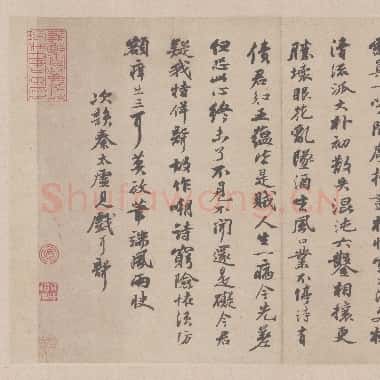 清流派大朴初散失混沌六鑿相攘更
勝壞眼花亂墜酒生風口業不停詩有
債君知五蘊皆是賊人生一病今先差
但恐此心終未了不見不聞還是礙今君
疑我特佯聾故作嘲詩窮險怪須防
額癢出三耳莫放筆端風雨快
次韻秦太虛見戲耳聾